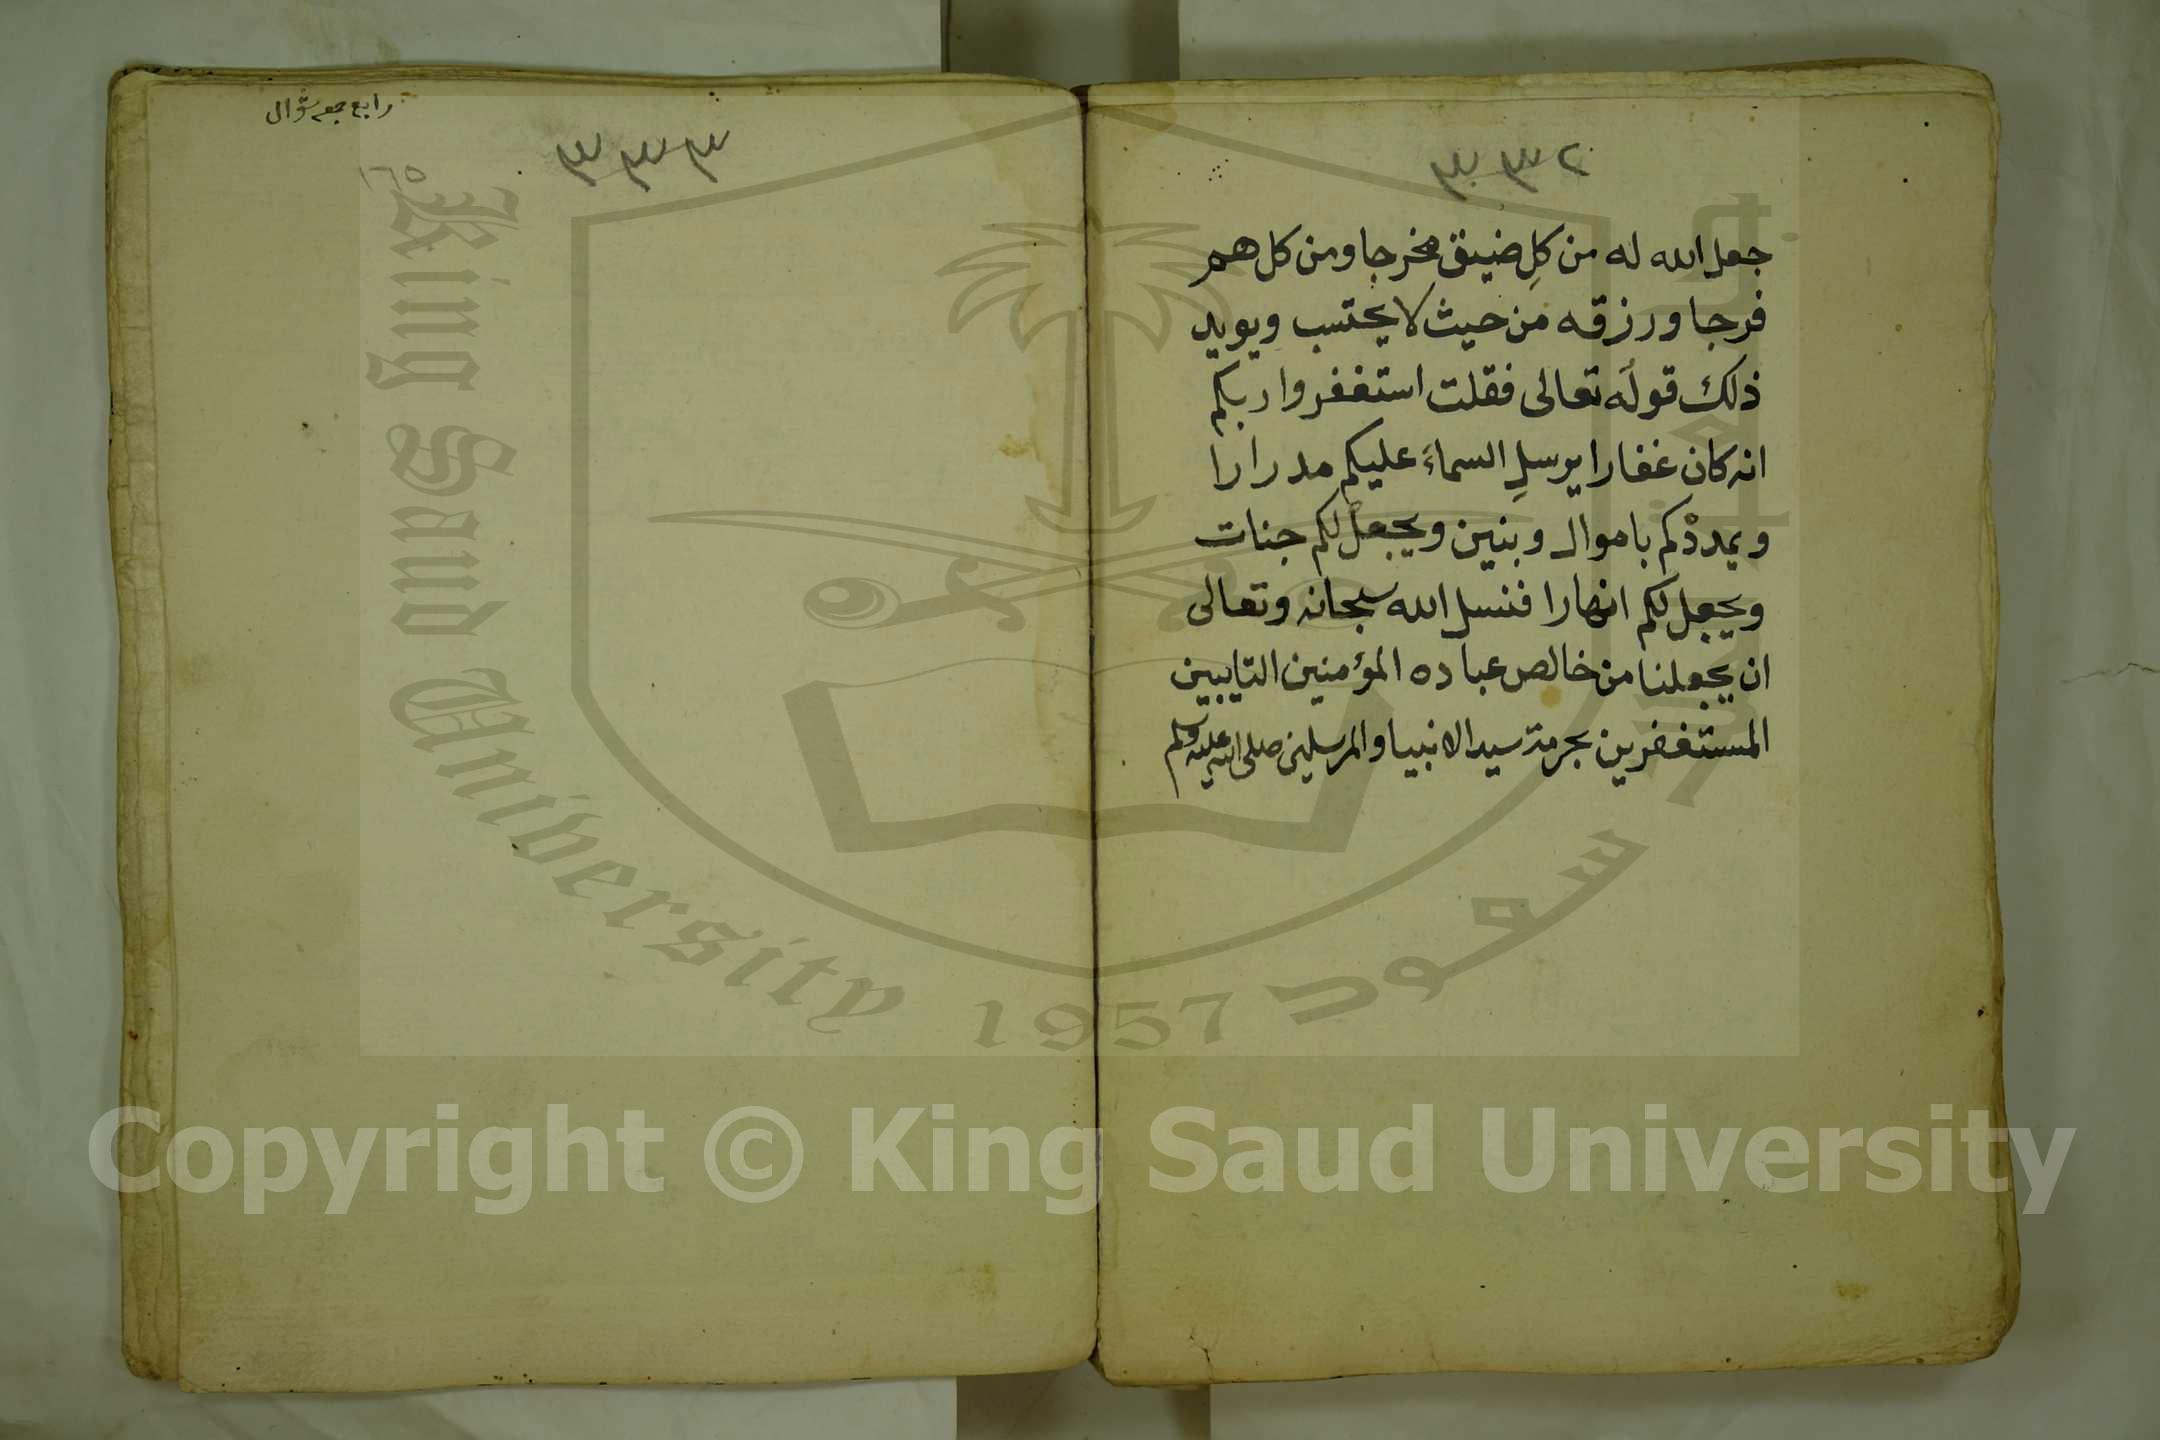 ٣٣٢
جعل الله له من كلِ ضيق مخرجا ومن كل هم
فرجا ورزقه من حيث لا يحتسب ويويد
ذلك قولُه تعالى فقلت استغفروا ربكم
انه كان غفارا يرسلِ السماءَ عليكم مدرارا
ويمددْكم باموال وبنين ويجعلْ لكم جنات
ويجعل لكم انهارا فنسل الله سبحانه وتعالى
ان يجعلنا من خالص عباده المؤمنين التايبين
المستغفرين بحرمة سيد الانبيا والمرسلين صلى الله عليه وسلم
رابع جمعه شوال
٣٣٣
١٦٥
King Saud University
1957
سعود
Copyright © King Saud University